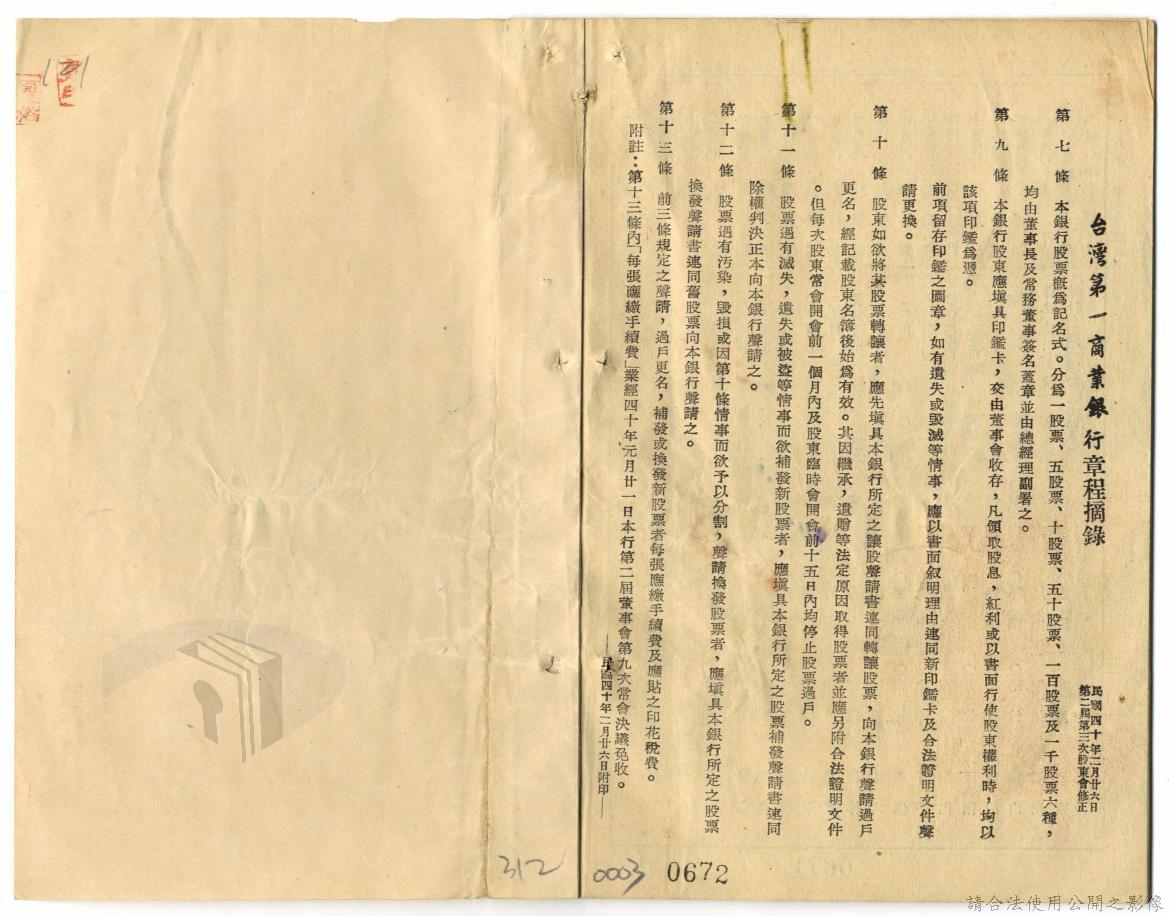 台灣第一商業銀行章程摘錄
民國四十年二月廿六日
第二屆第三次股東會修正
第七條 本銀行股票概爲記名式。分爲一股票、五股票、十股票、五十股票、一百股票及一千股票六種，
均由董事長及常務董事簽名蓋章並由總經理副署之。
第九條 本銀行股東應塡具印鑑卡，交由董事會收存，凡領取股息，紅利或以書面行使股東權利時，均以
該項印鑑爲憑。
前項留存印鑑之圖章，如有遺失或毀滅等情事，應以書面叙明理由連同新印鑑卡及合法證明文件聲
請更換。
第十條 股東如欲將其股票轉讓者，應先塡具本銀行所定之讓股聲請書連同轉讓股票，向本銀行聲請過戶
更名，經記載股東名簿後始爲有效。其因繼承，遺贈等法定原因取得股票者並應另附合法證明文件
。但每次股東常會開會前一個月內及股東臨時會開會前十五日內均停止股票過戶。
第十一條 股票遇有滅失，遺失或被盜等情事而欲補發新股票者，應塡具本銀行所定之股票補發聲請書連同
除權判決正本向本銀行聲請之。
第十二條 股票遇有汚染，毀損或因第十條情事而欲予以分割，聲請換發股票者，應塡具本銀行所定之股票
換發聲請書連同舊股票向本銀行聲請之。
第十三條 前三條規定之聲請，過戶更名，補發或換發新股票者每張應繳手續費及應貼之印花稅費。
附註：第十三條內「每張應繳手續費」業經四十年元月廿一日本行第二屆董事會第九次常會決議免收。
——民國四十年二月廿六日附印——
121
312
0003
0672
請合法使用公開之影像